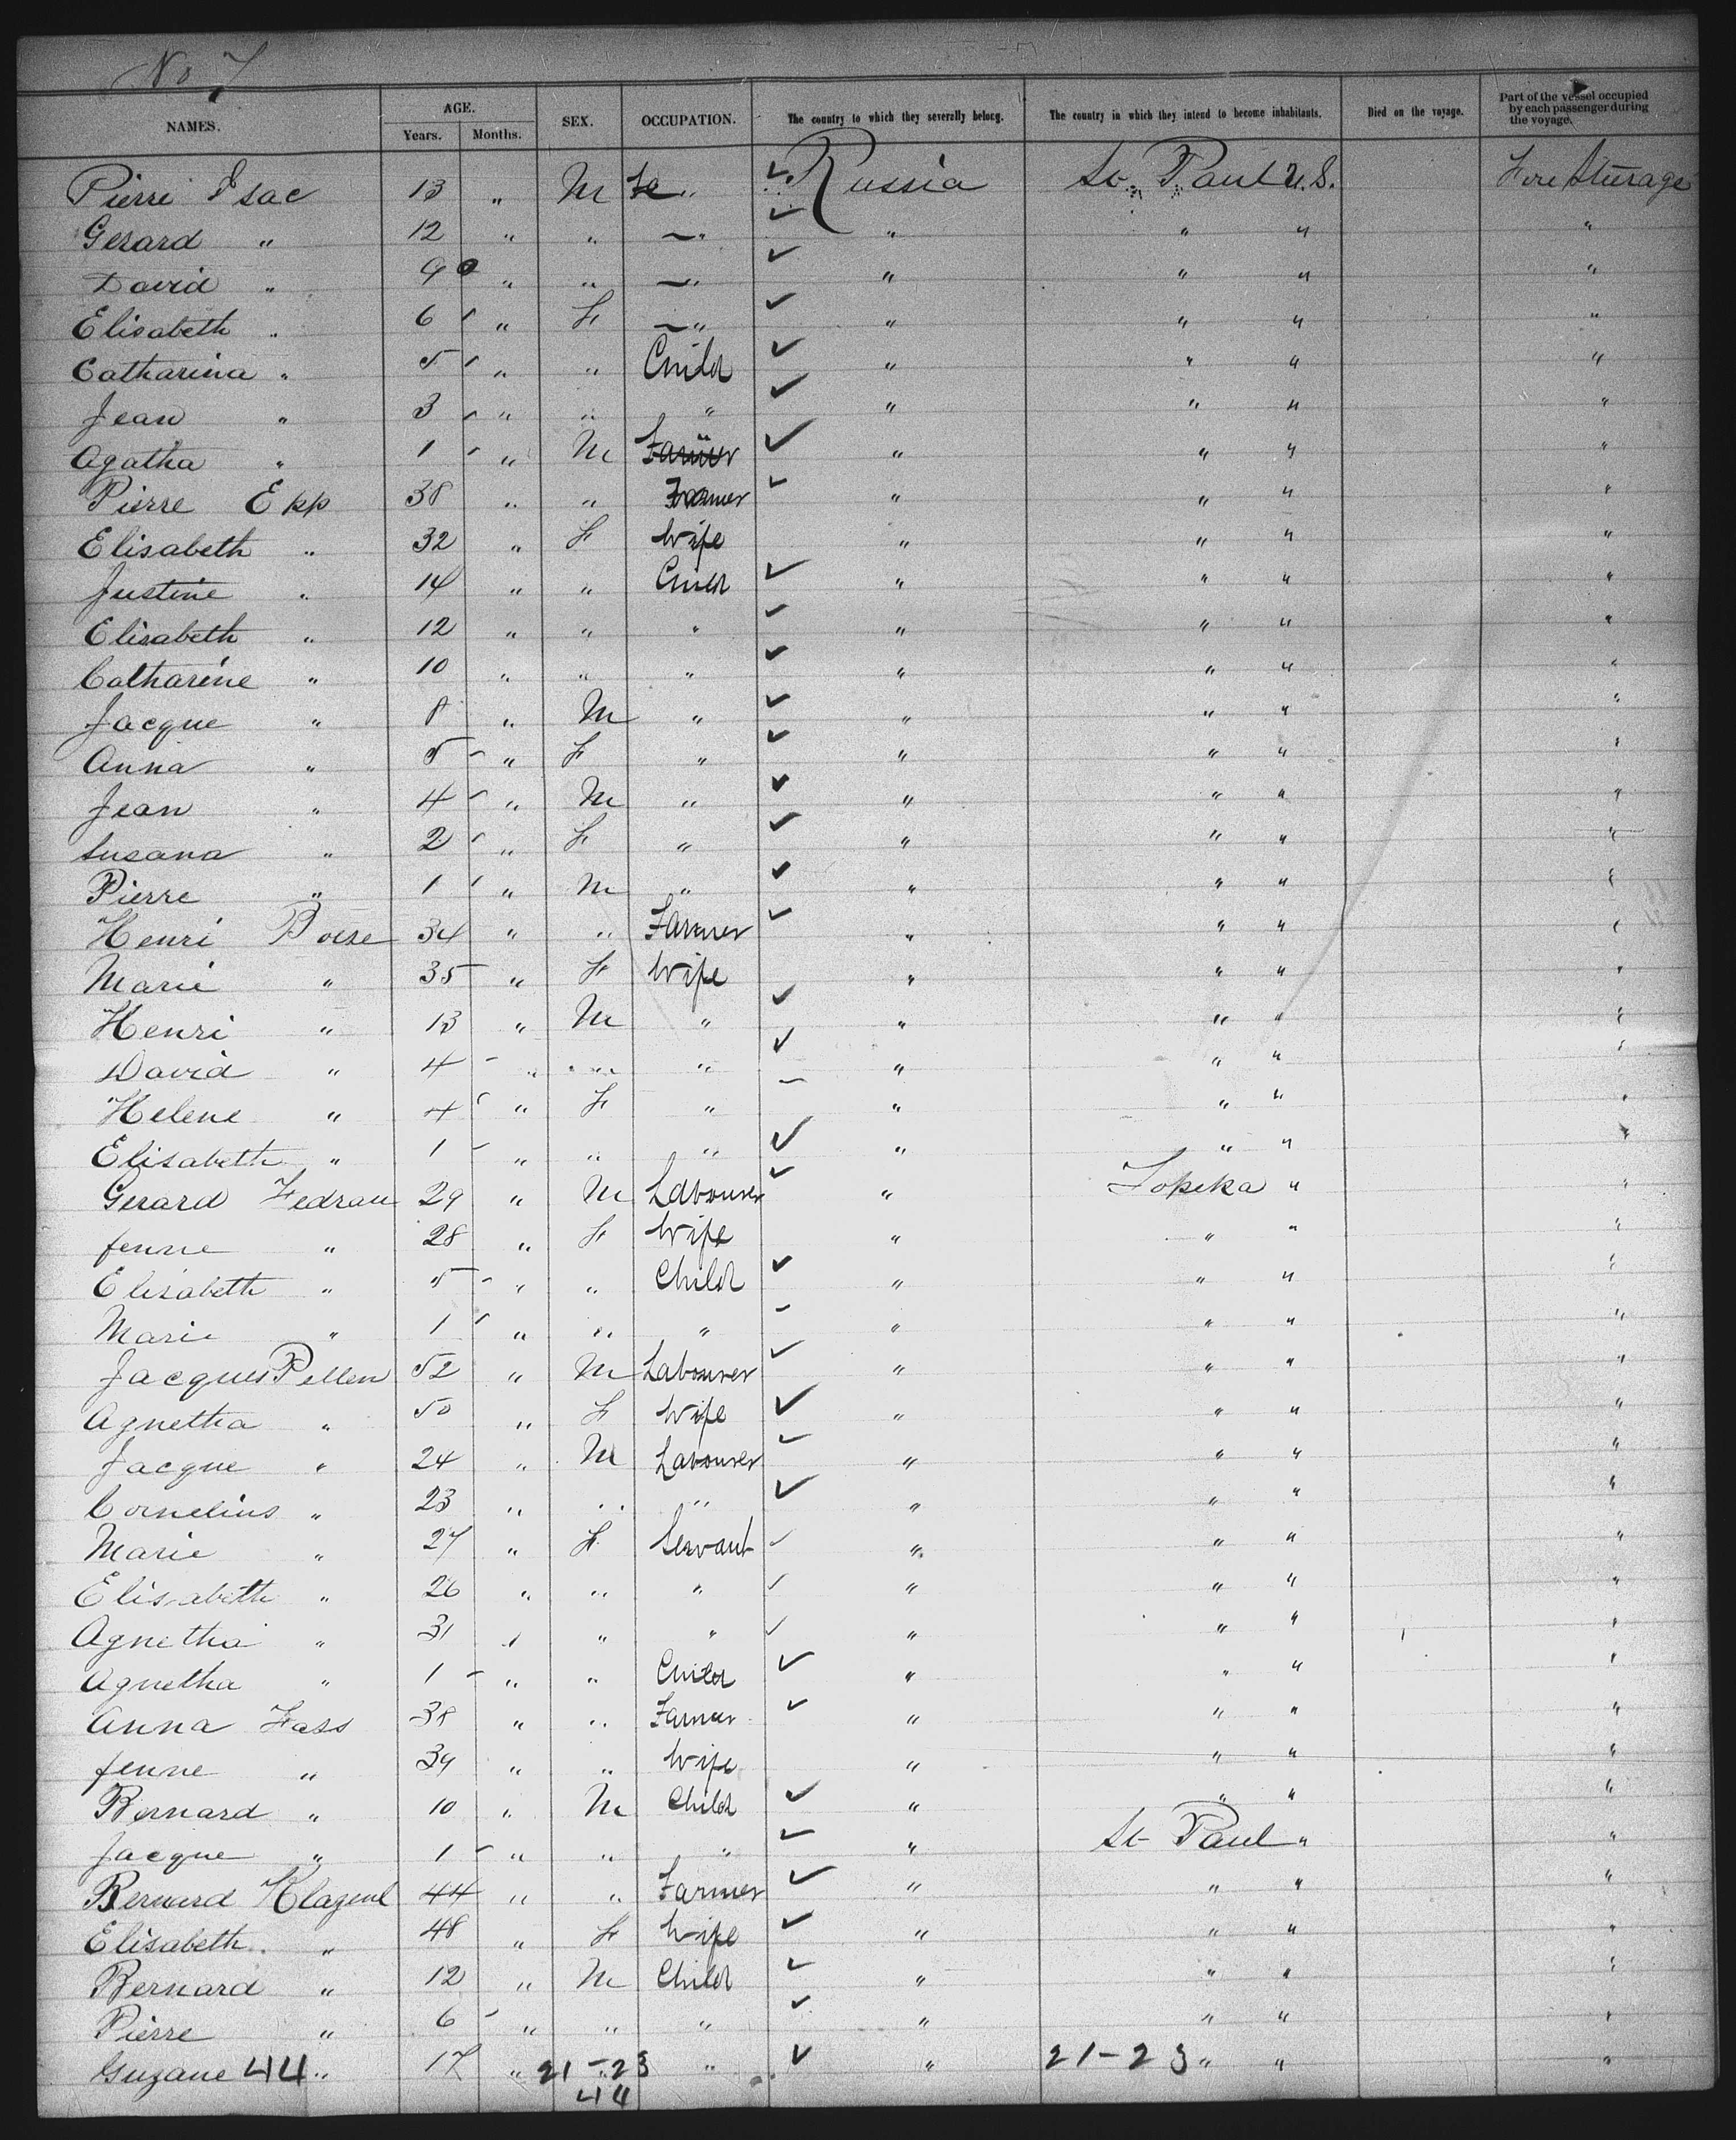 No 7
NAMES. AGE. Years. Months. SEX. OCCUPATION. The country to which they severally belong. The country in which they intend to become inhabitants. Died on the voyage. Part of the vessel occupied by each passenger during the voyage.
Pierre Isac 13 " M " Russia St. Paul U.S. Fore Steerage
Gerard " 12 " " " " " " "
David " 9 " " " " " " "
Elisabeth " 6 " F " " " " "
Catharina " 5 " " Child " " " "
Jean " 3 " " " " " " "
Agatha " 1 " M Farmer " " " "
Pierre Epp 38 " " Farmer " " " "
Elisabeth " 32 " F Wife " " " "
Justine " 14 " " Child " " " "
Elisabeth " 12 " " " " " " "
Catharine " 10 " " " " " " "
Jacque " 8 " M " " " " "
Anna " 5 " F " " " " "
Jean " 4 " M " " " " "
Susana " 2 " F " " " " "
Pierre " 1 " M " " " " "
Henri Boese 34 " " Farmer " " " "
Marie " 35 " F Wife " " " "
Henri " 13 " M " " " " "
David " 4 " " " " " " "
Helene " 4 " F " " " " "
Elisabeth " 1 " " " " " " "
Gerard Fedrau 29 " M Labourer " Topeka " "
fenne " 28 " F Wife " " " "
Elisabeth " 5 " " Child " " " "
Marie " 1 " " " " " " "
Jacques Pellen 52 " M Labourer " " " "
Agnetha " 50 " F Wife " " " "
Jacque " 24 " M Labourer " " " "
Cornelius " 23 " " " " " " "
Marie " 27 " F Servant " " " "
Elisabeth " 26 " " " " " " "
Agnetha " 31 " " " " " " "
Agnetha " 1 " " Child " " " "
Anna Fass 38 " " Farmer " " " "
fenne " 39 " " Wife " " " "
Bernard " 10 " M Child " " " "
Jacque " 1 " " " " St Paul " "
Bernard 44 " " Farmer " " " "
Elisabeth " 48 " F Wife " " " "
Bernard " 12 " M Child " " " "
Pierre " 6 " " " " " " "
Suzane 44 " 17 " 21-23 " " 21-23 " " "
44